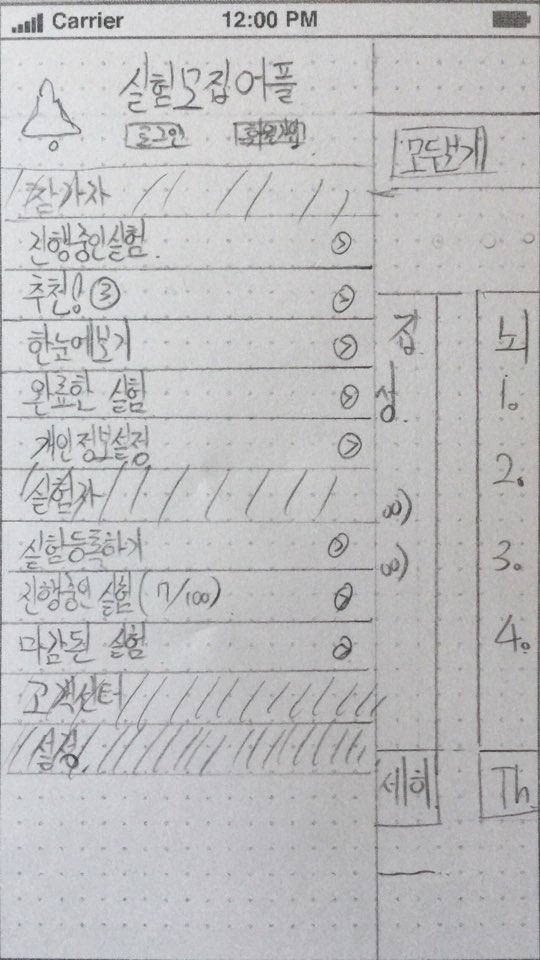 Carrier 12:00 PM
실험모집어플
로그인 회원가입
참가자
진행중인실험
추천! ③
한눈에보기
완료한 실험
개인정보설정
실험자
실험등록하기
진행중인 실험 (17/100)
마감된 실험
고객센터
설정
모두보기
집
성
∞)
∞)
세히
뇌
1.
2.
3.
4.
Th